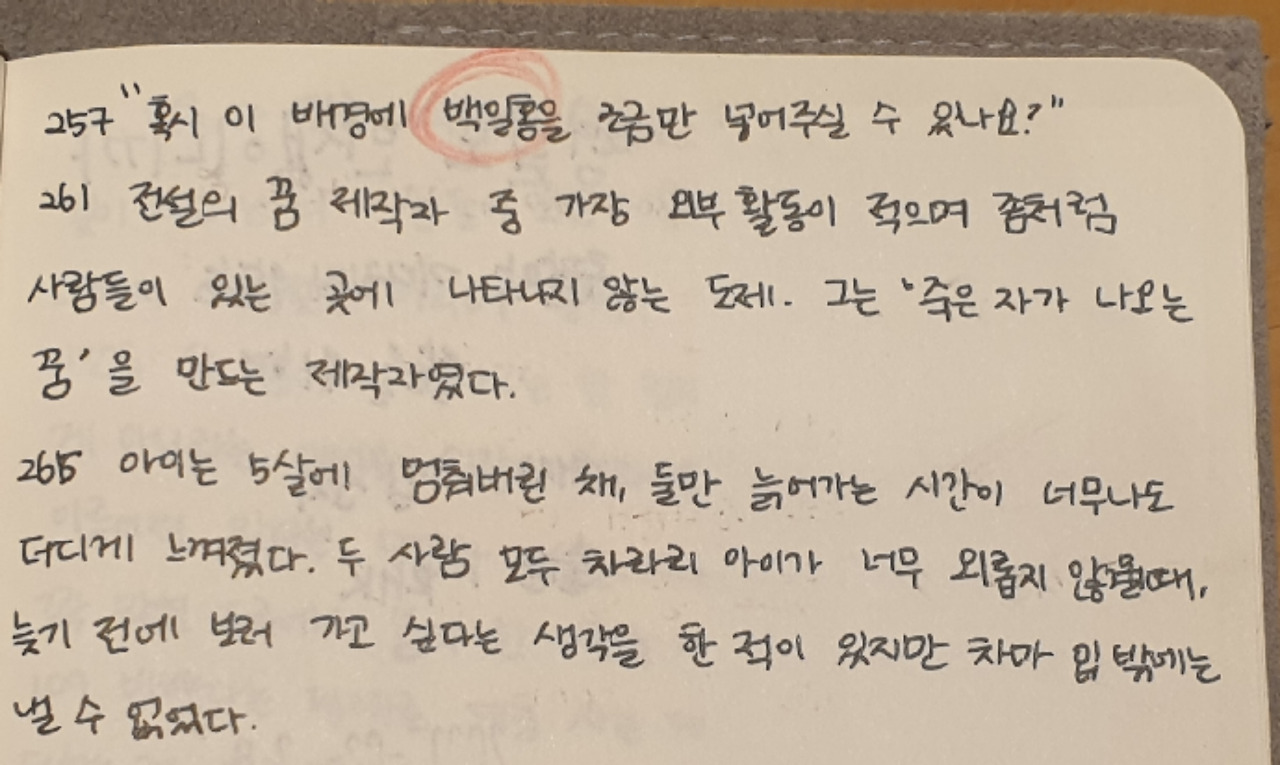 257 "혹시 이 배경에 백일홍을 조금만 넣어주실 수 있나요?"
261 전설의 꿈 제작자 중 가장 외부 활동이 적으며 좀처럼
사람들이 있는 곳에 나타나지 않는 도제. 그는 '죽은 자가 나오는
꿈'을 만드는 제작자였다.
265 아이는 5살에 멈춰버린 채, 둘만 늙어가는 시간이 너무나도
더디게 느껴졌다. 두 사람 모두 차라리 아이가 너무 외롭지 않을 때,
늦기 전에 보러 가고 싶다는 생각을 한 적이 있지만 차마 입 밖에는
낼 수 없었다.